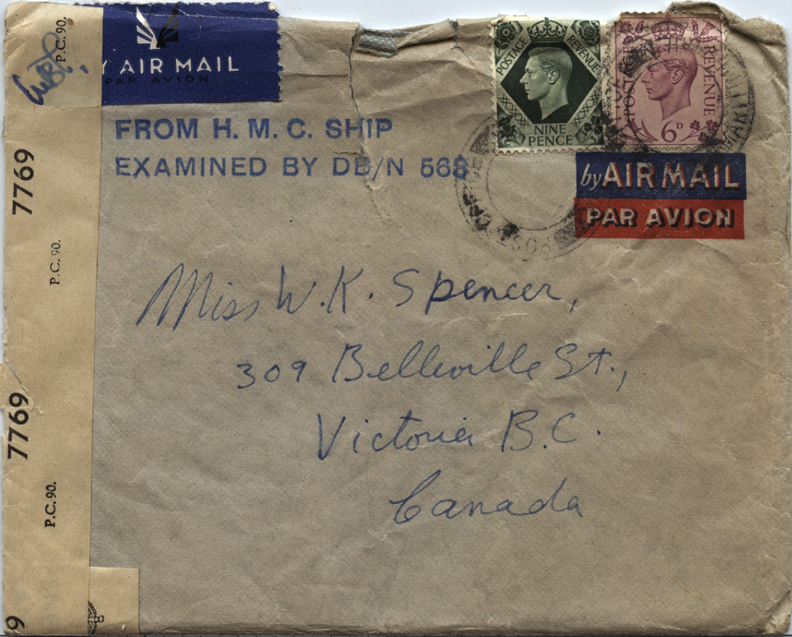 P.C. 90.
Y AIR MAIL
PAR AVION
7769
P.C. 90.
7769
P.C. 90.
9
FROM H. M. C. SHIP
EXAMINED BY DB/N 568
POSTAGE REVENUE
NINE
PENCE
REVENUE
6D
by AIR MAIL
PAR AVION
Miss W. K. Spencer,
309 Belleville St.,
Victoria B.C.
Canada